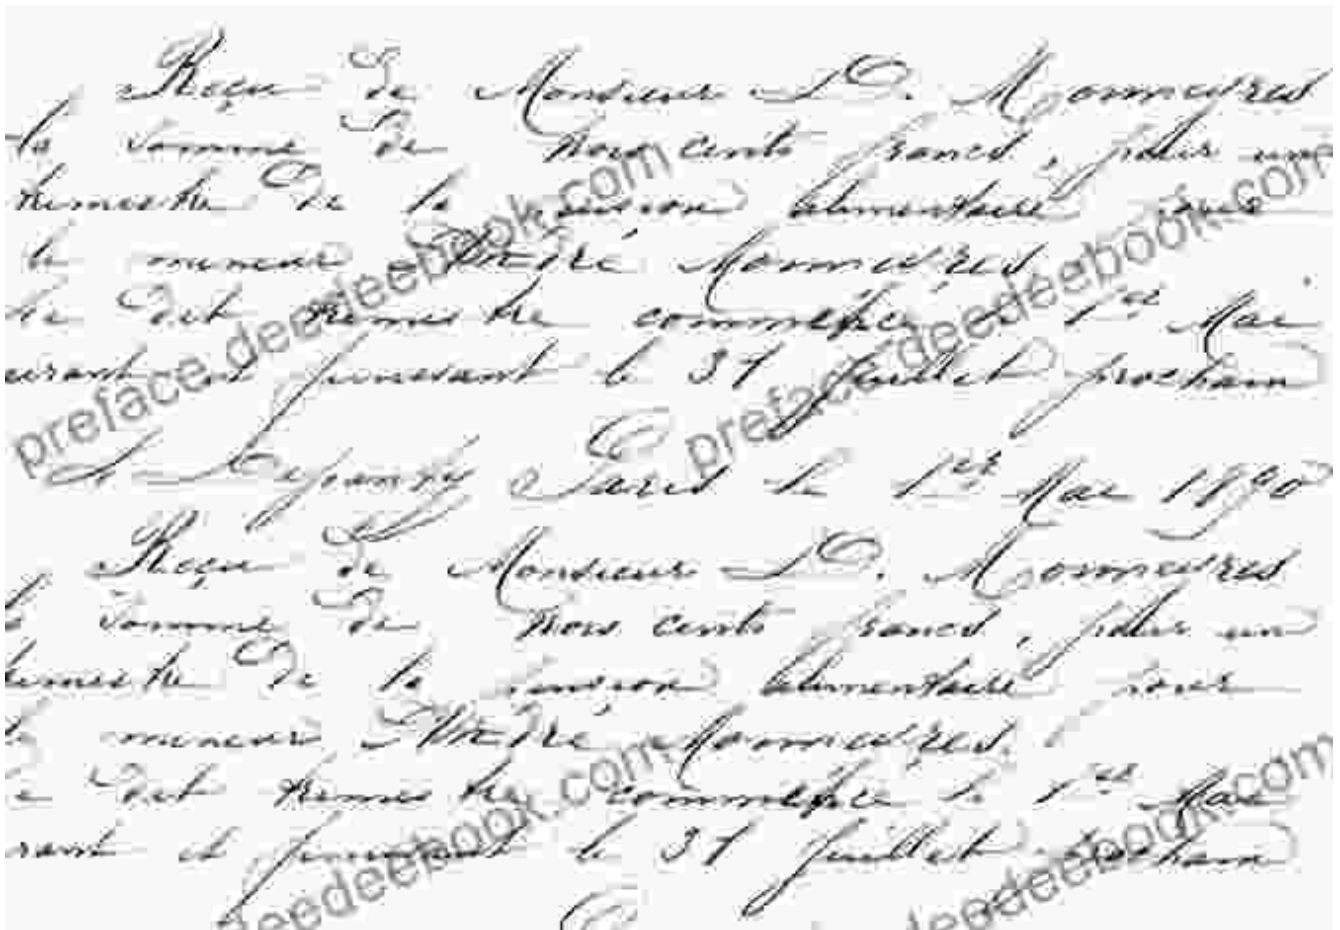 Reçu de Monsieur
la somme de trois cents francs, pour un
trimestre de la pension alimentaire
le mineur André
le dit trimestre commence le 1er Mai
courant et finissant le 31 Juillet prochain
Paris le 1er Mai 1890
Reçu de Monsieur
la somme de trois cents francs, pour un
trimestre de la pension alimentaire
le mineur André
le dit trimestre commence le 1er Mai
rant et finissant le 31 Juillet prochain
preface.deedeebook.com
preface.deedeebook.com
deedeebook.com
deedeebook.com